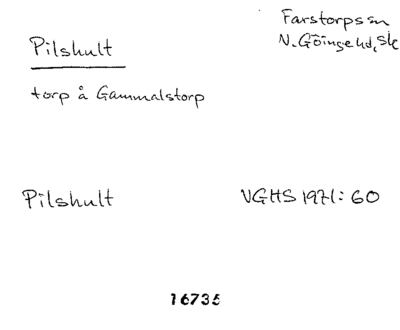 Pilshult
Farstorps sn
N. Göinge hd, Sk
torp å Gammalstorp
Pilshult
VGHS 1971: 60
16735